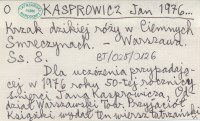 O KASPROWICZ Jan 1976...
Krzak dzikiej róży w Ciemnych
Smreczynach. - Warszawa.
Ss. 8. BT/025/2126
Dla uczczenia przypadają-
cej w 1976 roku 50-tej rocznicy
śmierci Jana Kasprowicza, Od-
dział Warszawski Tow. Przyjaciół
Książki wydał ten wiersz tatrzański